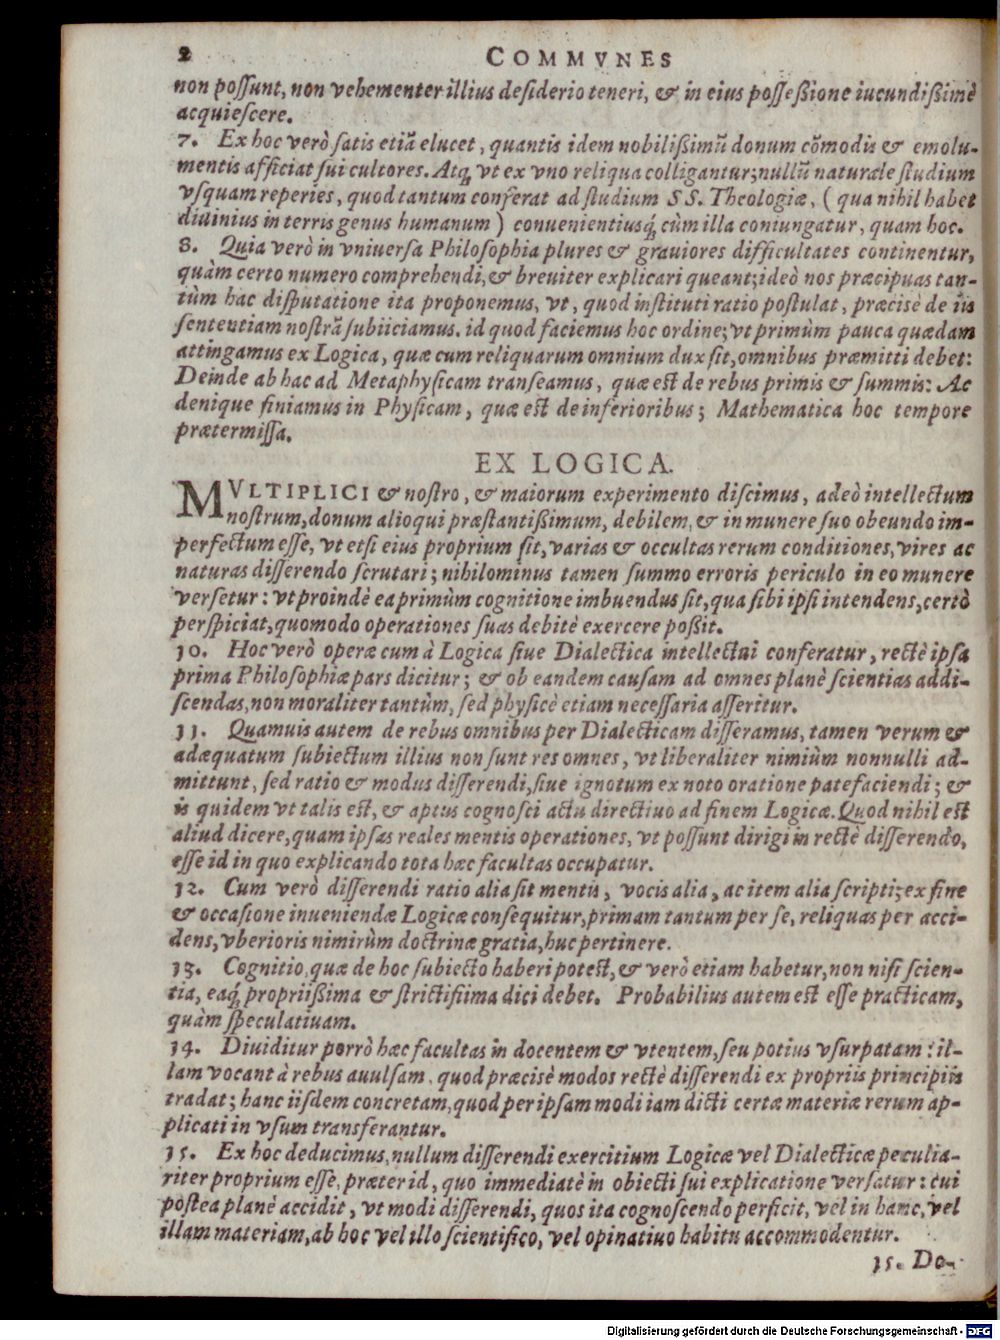 2 COMMVNES
non poſſunt, non vehementer illius deſiderio teneri, & in eius poſſeßione iucundißimè
acquieſcere.
7. Ex hoc verò ſatis etiã elucet, quantis idem nobilißimũ donum cõmodis & emolu-
mentis afficiat ſui cultores. Atq́ vt ex vno reliqua colligantur; nullũ naturale ſtudium
vſquam reperies, quod tantum conferat ad ſtudium SS. Theologiæ, (qua nihil habet
diuinius in terris genus humanum) conuenientiusq́ cùm illa coniungatur, quam hoc.
8. Quia verò in vniuerſa Philoſophia plures & grauiores difficultates continentur,
quàm certo numero comprehendi, & breuiter explicari queant; ideò nos præcipuas tan-
tùm hac diſputatione ita proponemus, vt, quod inſtituti ratio poſtulat, præcisè de iis
ſententiam noſtrã ſubiiciamus. id quod faciemus hoc ordine; vt primùm pauca quædam
attingamus ex Logica, quæ cum reliquarum omnium dux ſit, omnibus præmitti debet:
Deinde ab hac ad Metaphyſicam tranſeamus, quæ eſt de rebus primis & ſummis: Ac
denique finiamus in Phyſicam, quæ eſt de inferioribus; Mathematica hoc tempore
prætermiſſa.
EX LOGICA.
MVLTIPLICI & noſtro, & maiorum experimento diſcimus, adeò intellectum
noſtrum, donum alioqui præſtantißimum, debilem, & in munere ſuo obeundo im-
perfectum eſſe, vt etſi eius proprium ſit, varias & occultas rerum conditiones, vires ac
naturas diſſerendo ſcrutari; nihilominus tamen ſummo erroris periculo in eo munere
verſetur: vt proindè ea primùm cognitione imbuendus ſit, qua ſibi ipſi intendens, certò
perſpiciat, quomodo operationes ſuas debitè exercere poßit.
10. Hoc verò operæ cum à Logica ſiue Dialectica intellectui conferatur, rectè ipſa
prima Philoſophiæ pars dicitur; & ob eandem cauſam ad omnes planè ſcientias addi-
ſcendas, non moraliter tantùm, ſed phyſicè etiam neceſſaria aſſeritur.
11. Quamuis autem de rebus omnibus per Dialecticam diſſeramus, tamen verum &
adæquatum ſubiectum illius non ſunt res omnes, vt liberaliter nimiùm nonnulli ad-
mittunt, ſed ratio & modus diſſerendi, ſiue ignotum ex noto oratione patefaciendi; &
is quidem vt talis eſt, & aptus cognoſci actu directiuo ad finem Logicæ. Quod nihil eſt
aliud dicere, quam ipſas reales mentis operationes, vt poſſunt dirigi in rectè diſſerendo,
eſſe id in quo explicando tota hæc facultas occupatur.
12. Cum verò diſſerendi ratio alia ſit mentis, vocis alia, ac item alia ſcripti; ex fine
& occaſione inueniendæ Logicæ conſequitur, primam tantum per ſe, reliquas per acci-
dens, vberioris nimirùm doctrinæ gratia, huc pertinere.
13. Cognitio, quæ de hoc ſubiecto haberi poteſt, & verò etiam habetur, non niſi ſcien-
tia, eaq́ propriißima & ſtrictiſſima dici debet. Probabilius autem eſt eſſe practicam,
quàm ſpeculatiuam.
14. Diuiditur porrò hæc facultas in docentem & vtentem, ſeu potius vſurpatam: il-
lam vocant à rebus auulſam, quod præcisè modos rectè diſſerendi ex propriis principiis
tradat; hanc iiſdem concretam, quod per ipſam modi iam dicti certæ materiæ rerum ap-
plicati in vſum transferantur.
15. Ex hoc deducimus, nullum diſſerendi exercitium Logicæ vel Dialecticæ peculia-
riter proprium eſſe, præter id, quo immediatè in obiecti ſui explicatione verſatur: cui
poſtea planè accidit, vt modi diſſerendi, quos ita cognoſcendo perficit, vel in hanc, vel
illam materiam, ab hoc vel illo ſcientifico, vel opinatiuo habitu accommodentur.
15. Do-
Digitalisierung gefördert durch die Deutsche Forschungsgemeinschaft - DFG